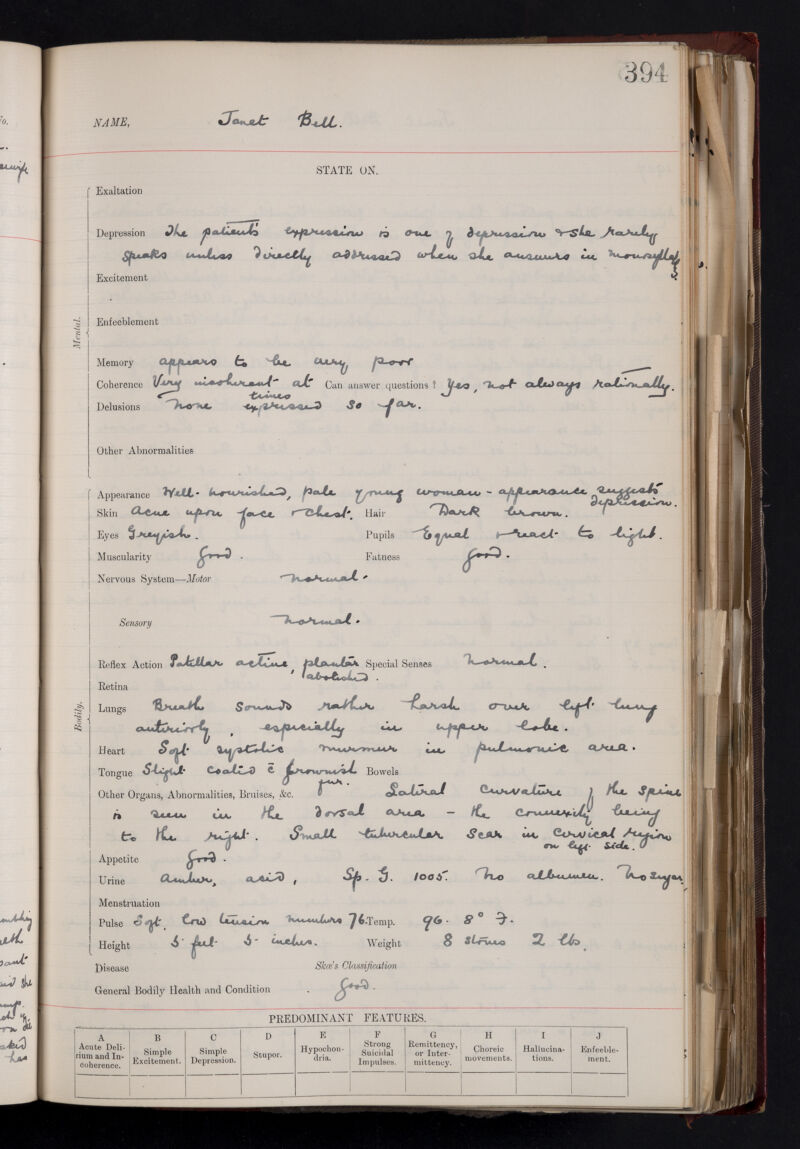 394
NAME, Janet Bell.
STATE ON.
Mental.
Exaltation
Depression The patient's expression is one of depression & she rarely
speaks unless directly addressed when she answers in monosyllables
Excitement
Enfeeblement
Memory appears to be very poor
Coherence Very incoherent at times Can answer questions? Yes, not always rationally.
Delusions None expressed so far.
Other Abnormalities
Bodily.
Appearance Well-nourished, pale young woman - appearance suggests depression.
Skin Acne upon face & chest. Hair Dark brown.
Eyes Greyish. Pupils Equal & react to light.
Muscularity Good. Fatness Good.
Nervous System—Motor Normal.
Sensory Normal.
Reflex Action Patellar active, plantar abolished. Special Senses Normal.
Retina
Lungs Breath sounds rather harsh over left lung
anteriorly, especially in upper lobe.
Heart Soft systolic murmur in pulmonic area.
Tongue Slight coated c̄ brownish fur. Bowels
Other Organs, Abnormalities, Bruises, &c. Lateral curvature of the spine
is seen in the dorsal area - the convexity being
to the right. Small tubercular scar in cervical region
on left side.
Appetite Good.
Urine Amber, acid, Sp. G. 1005. No albumen. No sugar.
Menstruation
Pulse Soft, low tension numbers 76. Temp. 96.8° F.
Height 5 feet 5 inches. Weight 8 stones 2 lbs.
Disease Skae's Classification
General Bodily Health and Condition Good.
PREDOMINANT FEATURES.
A Acute Delirium and Incoherence.
B Simple Excitement.
C Simple Depression.
D Stupor.
E Hypochondria.
F Strong Suicidal Impulses.
G Remittency, or Intermittency.
H Choreic movements.
I Hallucinations.
J Enfeeblement.